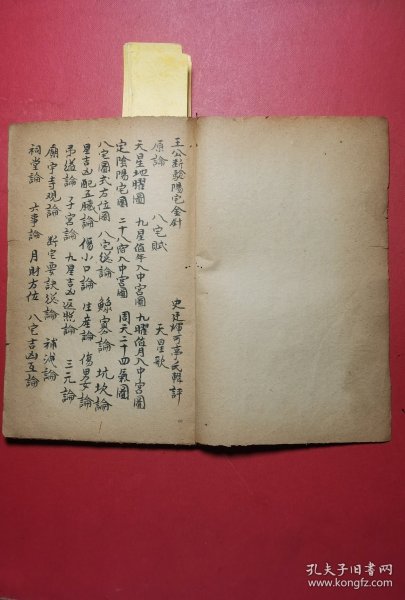 王公断驗陽宅金針
史廷輝可亭氏輯評
原論 八宅賦 天星歌
天星地曜圖 九星值年入中宮圖 九曜值月入中宮圖
定陰陽宅圖 二十八宿入中宮圖 周天二十四氣圖
八宅圖式方位圖 八宅総論 鰥寡論 坑坎論
星吉凶配五臟論 傷小口論 生産論 傷男女論
吊道論 子宮論 九星吉凶返照論 三元論
廟宇寺观論 断宅要訣総論 補洩論
祠堂論 六事論 月財方位 八宅吉凶互論
孔夫子旧书网
www.kongfz.com